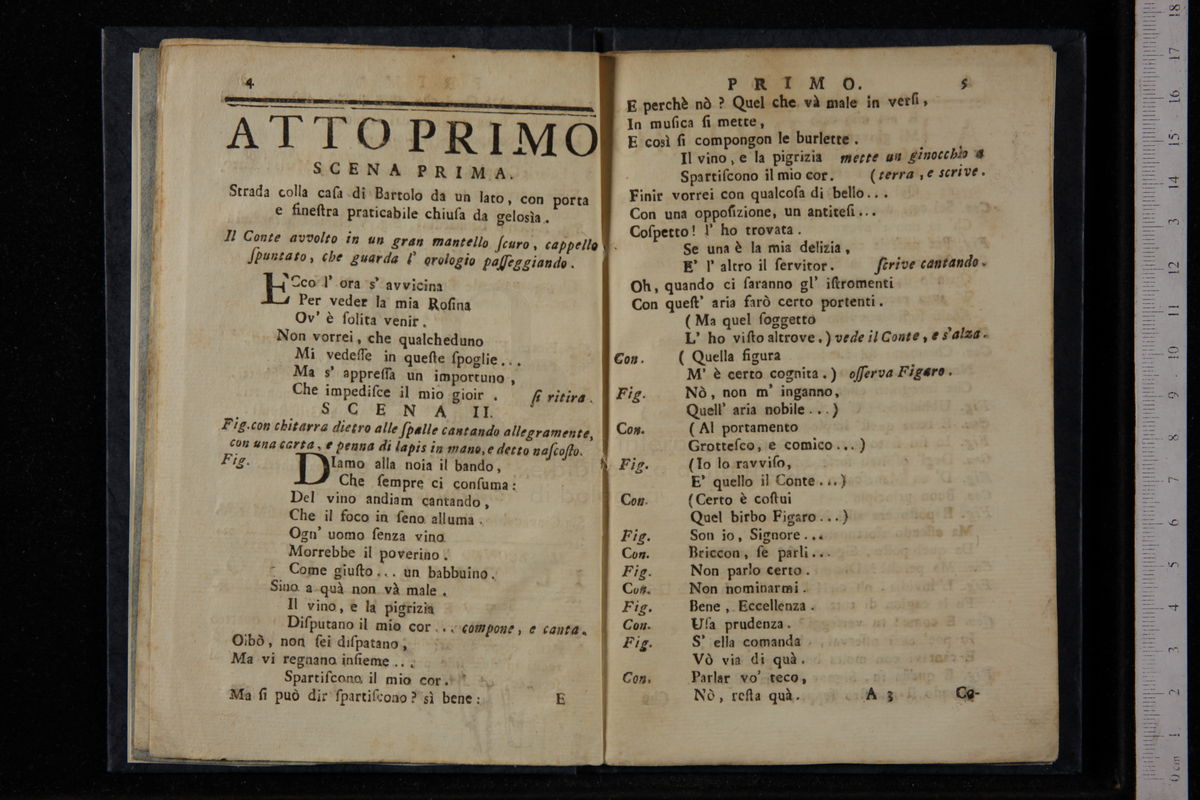 4
ATTO PRIMO
SCENA PRIMA.
Strada colla caſa di Bartolo da un lato, con porta
e fineſtra praticabile chiuſa da gelosìa.
Il Conte avvolto in un gran mantello ſcuro, cappello
ſpuntato, che guarda l' orologio paſſeggiando.
ECco l' ora s' avvicina
Per veder la mia Roſina
Ov' è ſolita venir.
Non vorrei, che qualcheduno
Mi vedeſſe in queſte ſpoglie...
Ma s' appreſſa un importuno,
Che impediſce il mio gioir. ſi ritira.
SCENA II.
Fig. con chitarra dietro alle ſpalle cantando allegramente,
con una carta, e penna di lapis in mano, e detto naſcoſto.
Fig. DIamo alla noia il bando,
Che ſempre ci conſuma:
Del vino andiam cantando,
Che il foco in ſeno alluma.
Ogn' uomo ſenza vino
Morrebbe il poverino.
Come giuſto... un babbuino.
Sino a quà non và male.
Il vino, e la pigrizia
Diſputano il mio cor... compone, e canta.
Oibò, non ſei diſpatano,
Ma vi regnano inſieme...
Spartiſcono il mio cor.
Ma ſi può dir ſpartiſcono? sì bene:
E
PRIMO. 5
E perchè nò? Quel che và male in verſi,
In muſica ſi mette,
E così ſi compongon le burlette.
Il vino, e la pigrizia mette un ginocchio a
Spartiſcono il mio cor. (terra, e scrive.
Finir vorrei con qualcoſa di bello...
Con una oppoſizione, un antiteſi...
Coſpetto! l' ho trovata.
Se una è la mia delizia,
E' l' altro il ſervitor. ſcrive cantando.
Oh, quando ci ſaranno gl' iſtromenti
Con queſt' aria farò certo portenti.
(Ma quel ſoggetto
L' ho viſto altrove.) vede il Conte, e s'alza.
Con. (Quella figura
M' è certo cognita.) oſſerva Figaro.
Fig. Nò, non m' inganno,
Quell' aria nobile...)
Con. (Al portamento
Grotteſco, e comico...)
Fig. (Io lo ravviſo,
E' quello il Conte...)
Con. (Certo è coſtui
Quel birbo Figaro...)
Fig. Son io, Signore...
Con. Briccon, ſe parli...
Fig. Non parlo certo.
Con. Non nominarmi.
Fig. Bene, Eccellenza.
Con. Uſa prudenza.
Fig. S' ella comanda
Vò via di quà.
Con. Parlar vo' teco,
Nò, reſta quà. A 3 Co-
0 cm 1 2 3 4 5 6 7 8 9 10 11 12 13 14 15 16 17 18